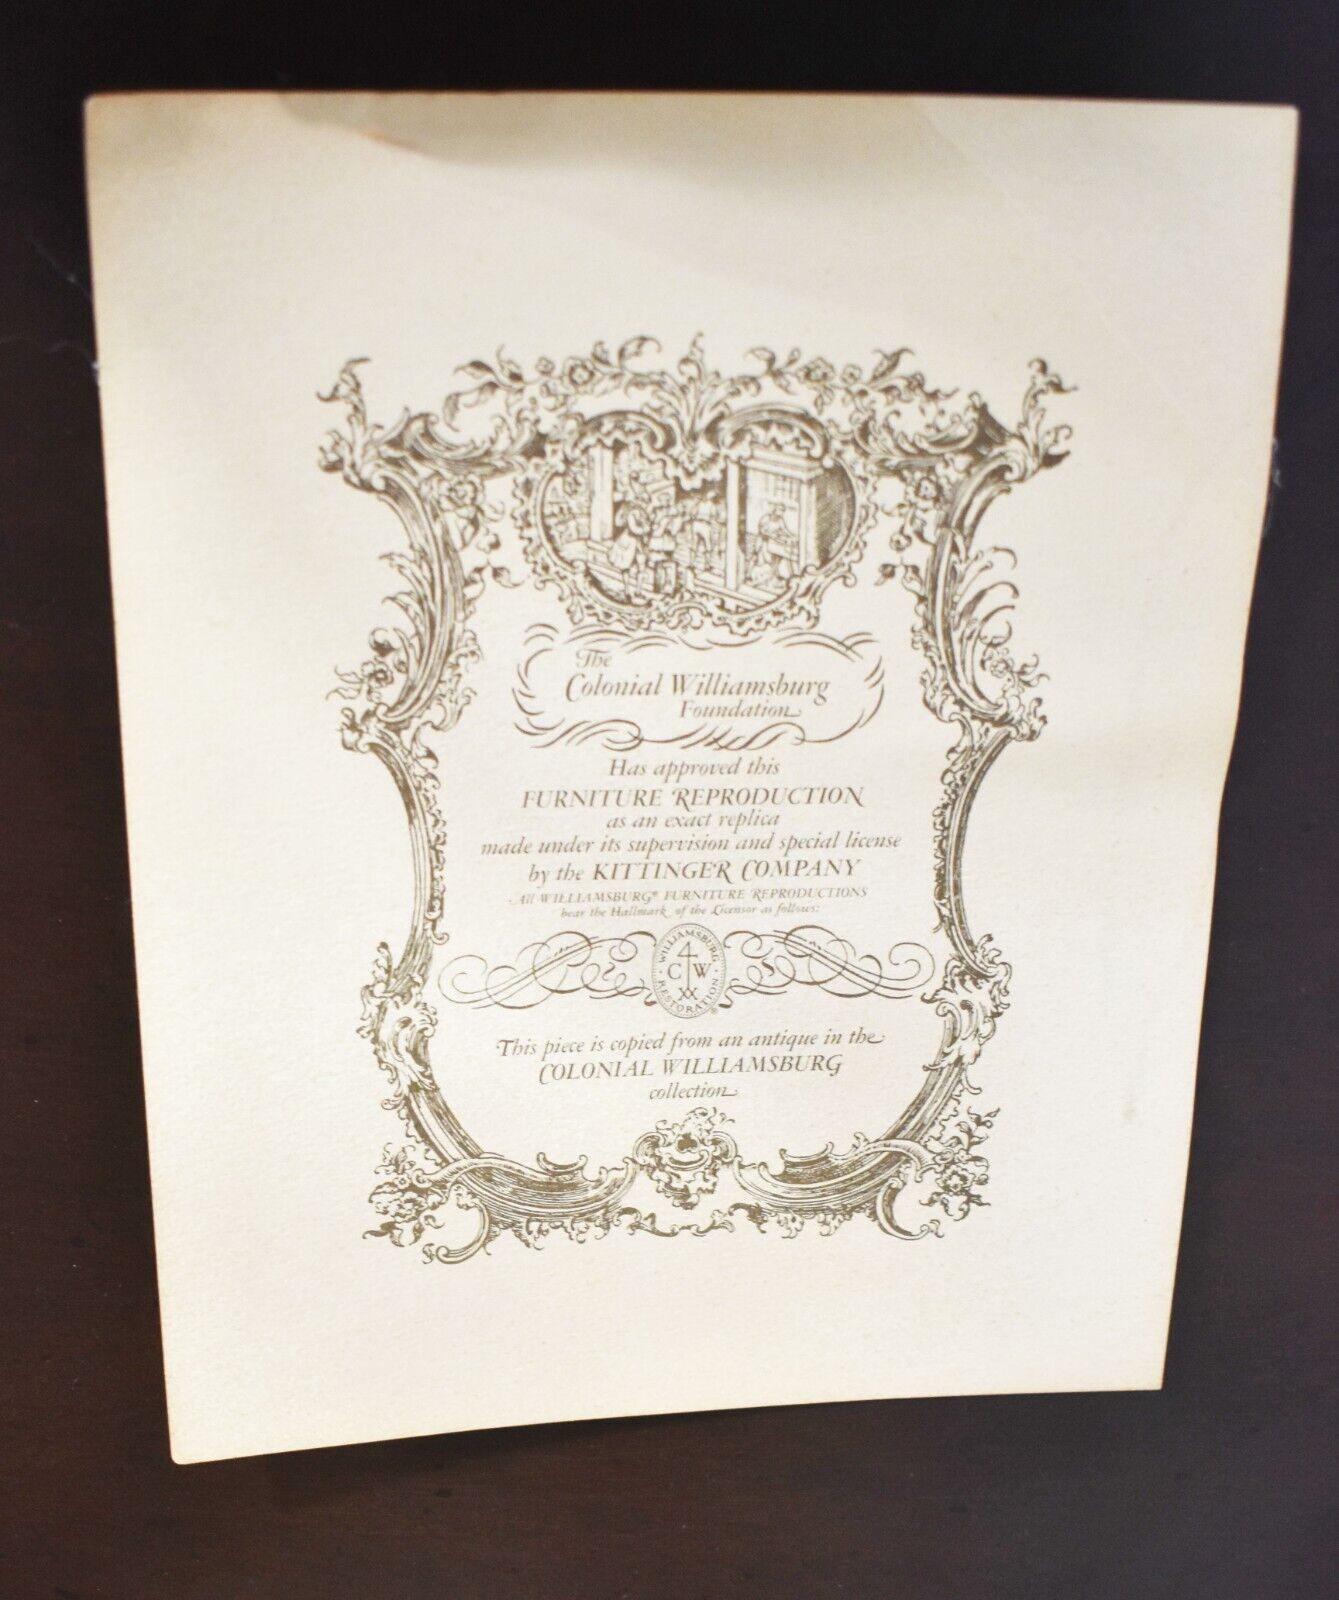 The
Colonial Williamsburg
Foundation
Has approved this
FURNITURE REPRODUCTION
as an exact replica
made under its supervision and special license
by the KITTINGER COMPANY
All WILLIAMSBURG® FURNITURE REPRODUCTIONS
bear the Hallmark of the Licensor as follows:
WILLIAMSBURG
C W
RESTORATION®
This piece is copied from an antique in the
COLONIAL WILLIAMSBURG
collection